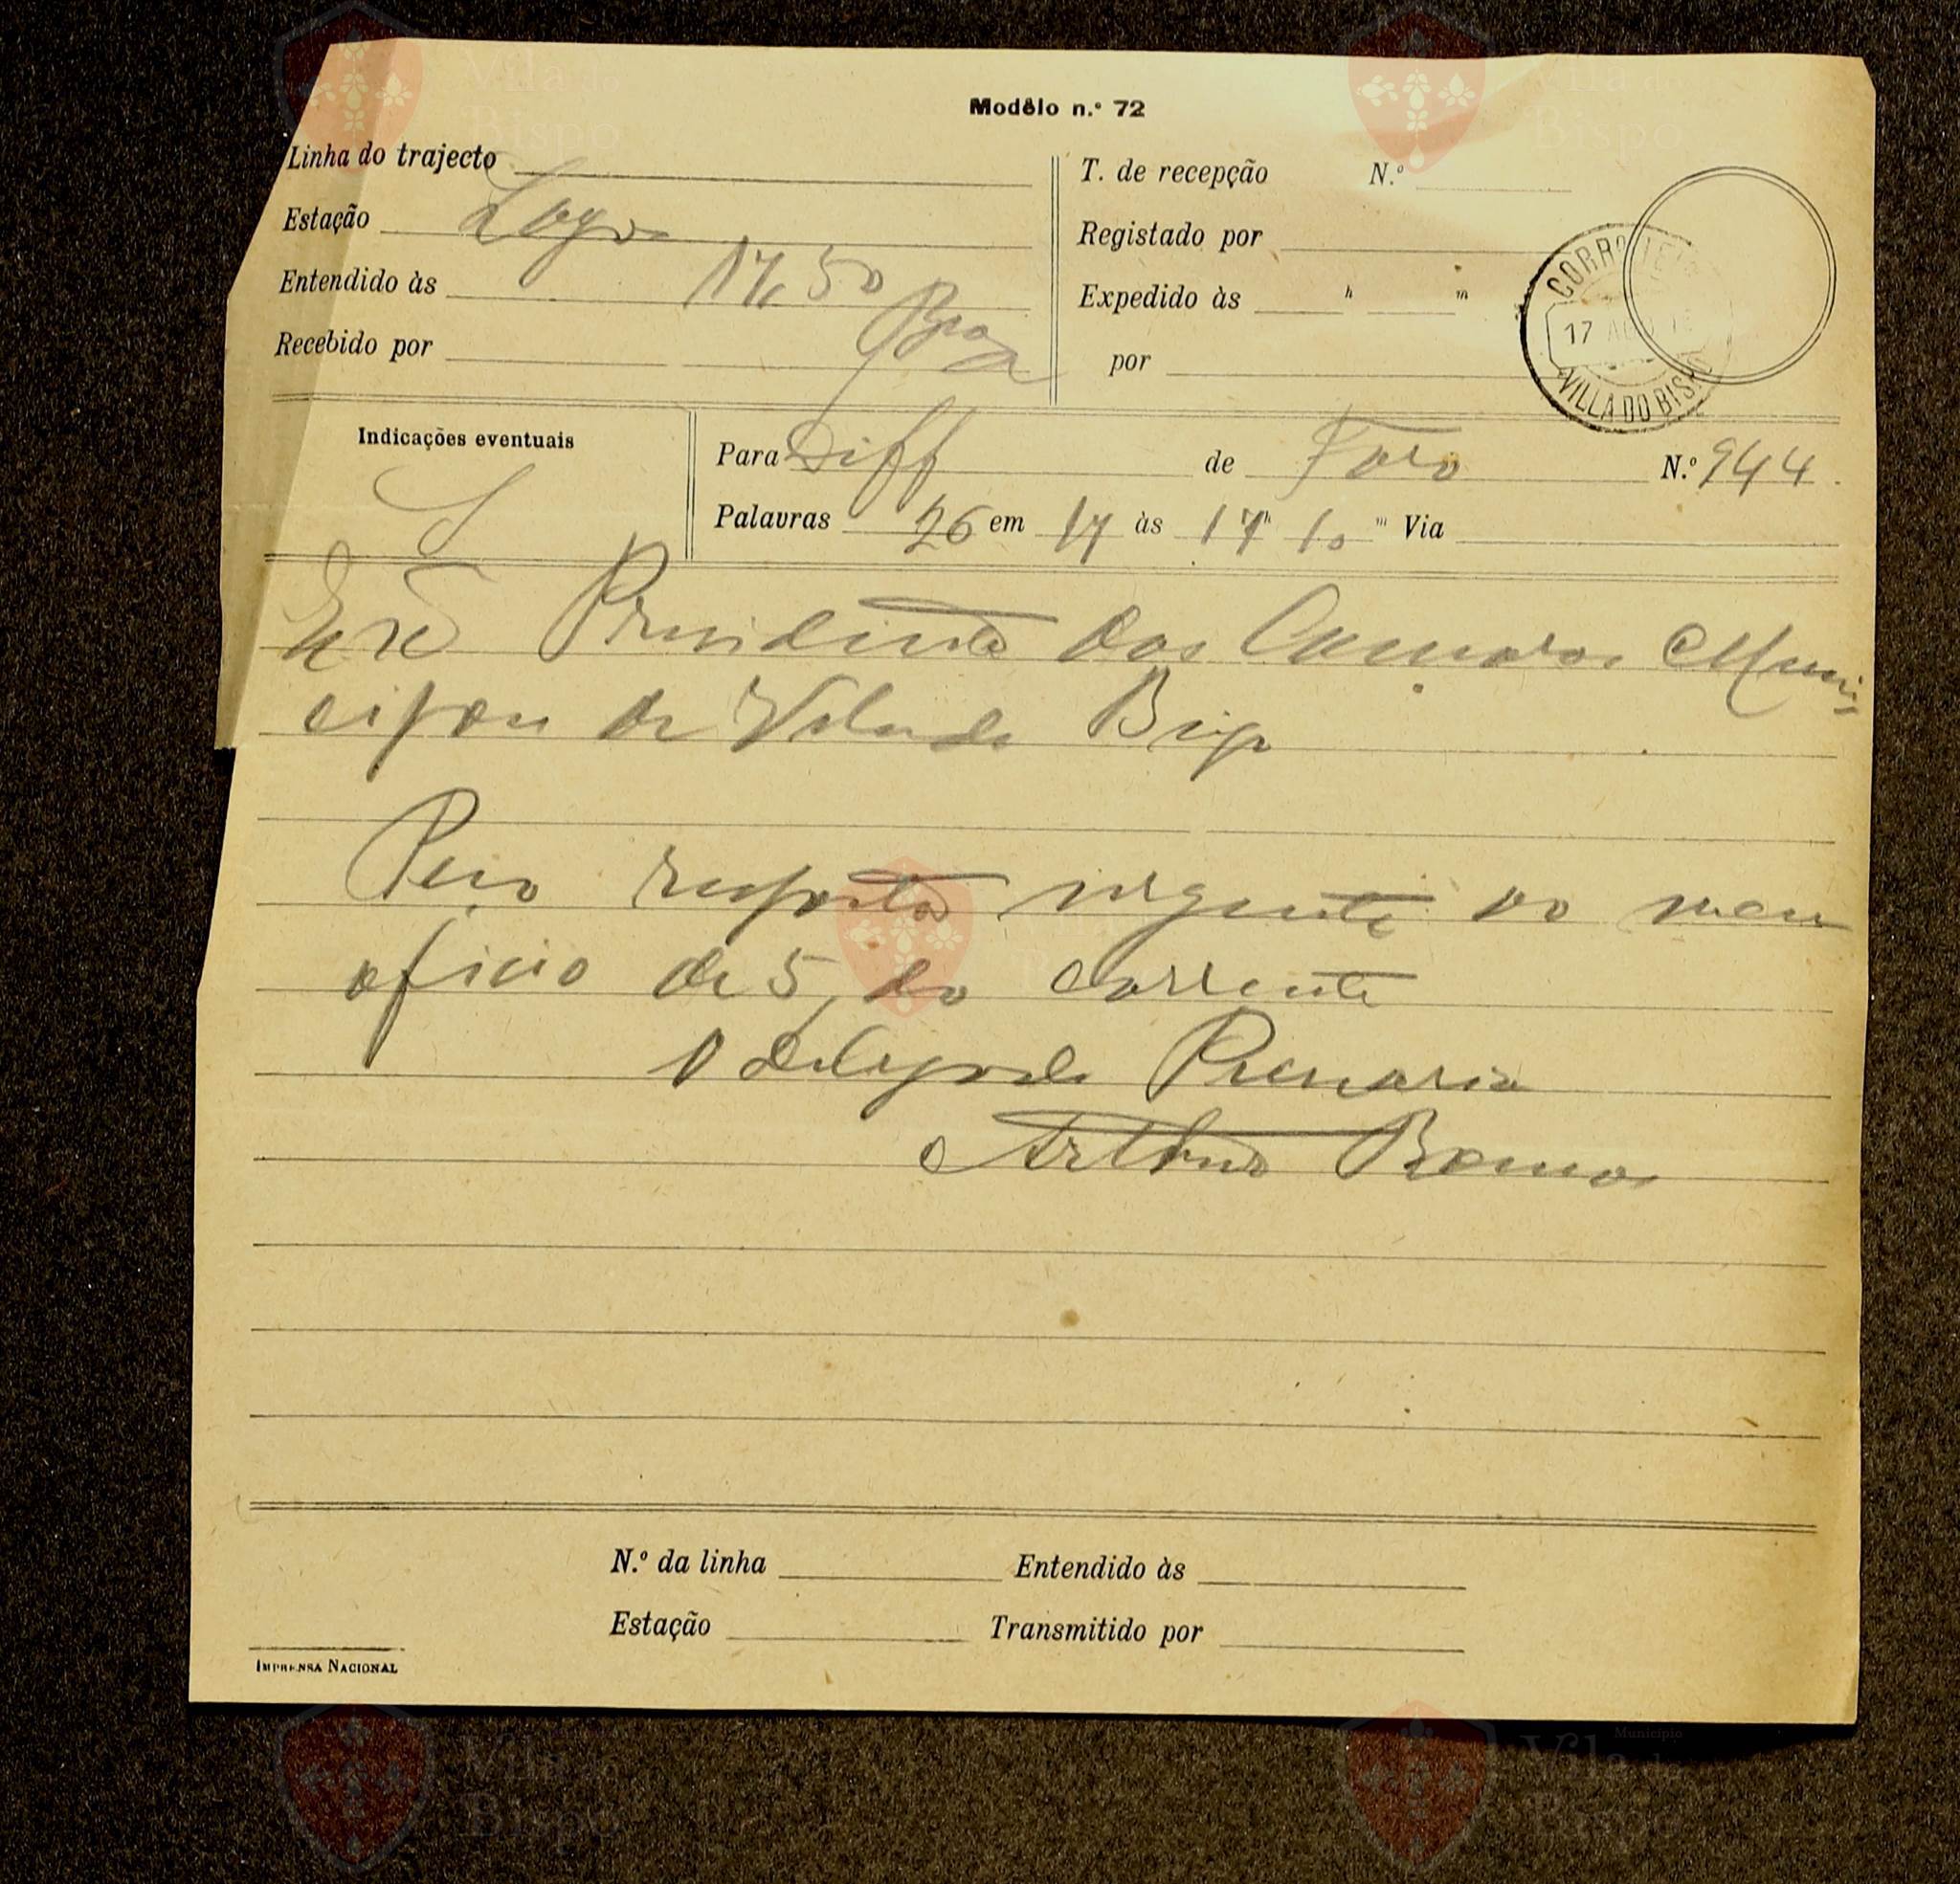 Modêlo n.º 72
Linha do trajecto
Estação Lagos
Entendido às 17,50
Recebido por
T. de recepção N.º
Registado por
Expedido às h m
por
CORRO TE
17 AGO
VILLA DO BISPO
Indicações eventuais
S
Para Diff de Faro N.º 944
Palavras 26 em 17 às 17 h 10 m Via
Exmo Presidente das Camara Muni
cipau de Vila do Bispo
Peço resposta urgente ao meu
oficio de 5, do corrente
O Delegado
Arthur
N.º da linha Entendido às
Estação Transmitido por
IMPRENSA NACIONAL
Município
Vila do
Bispo